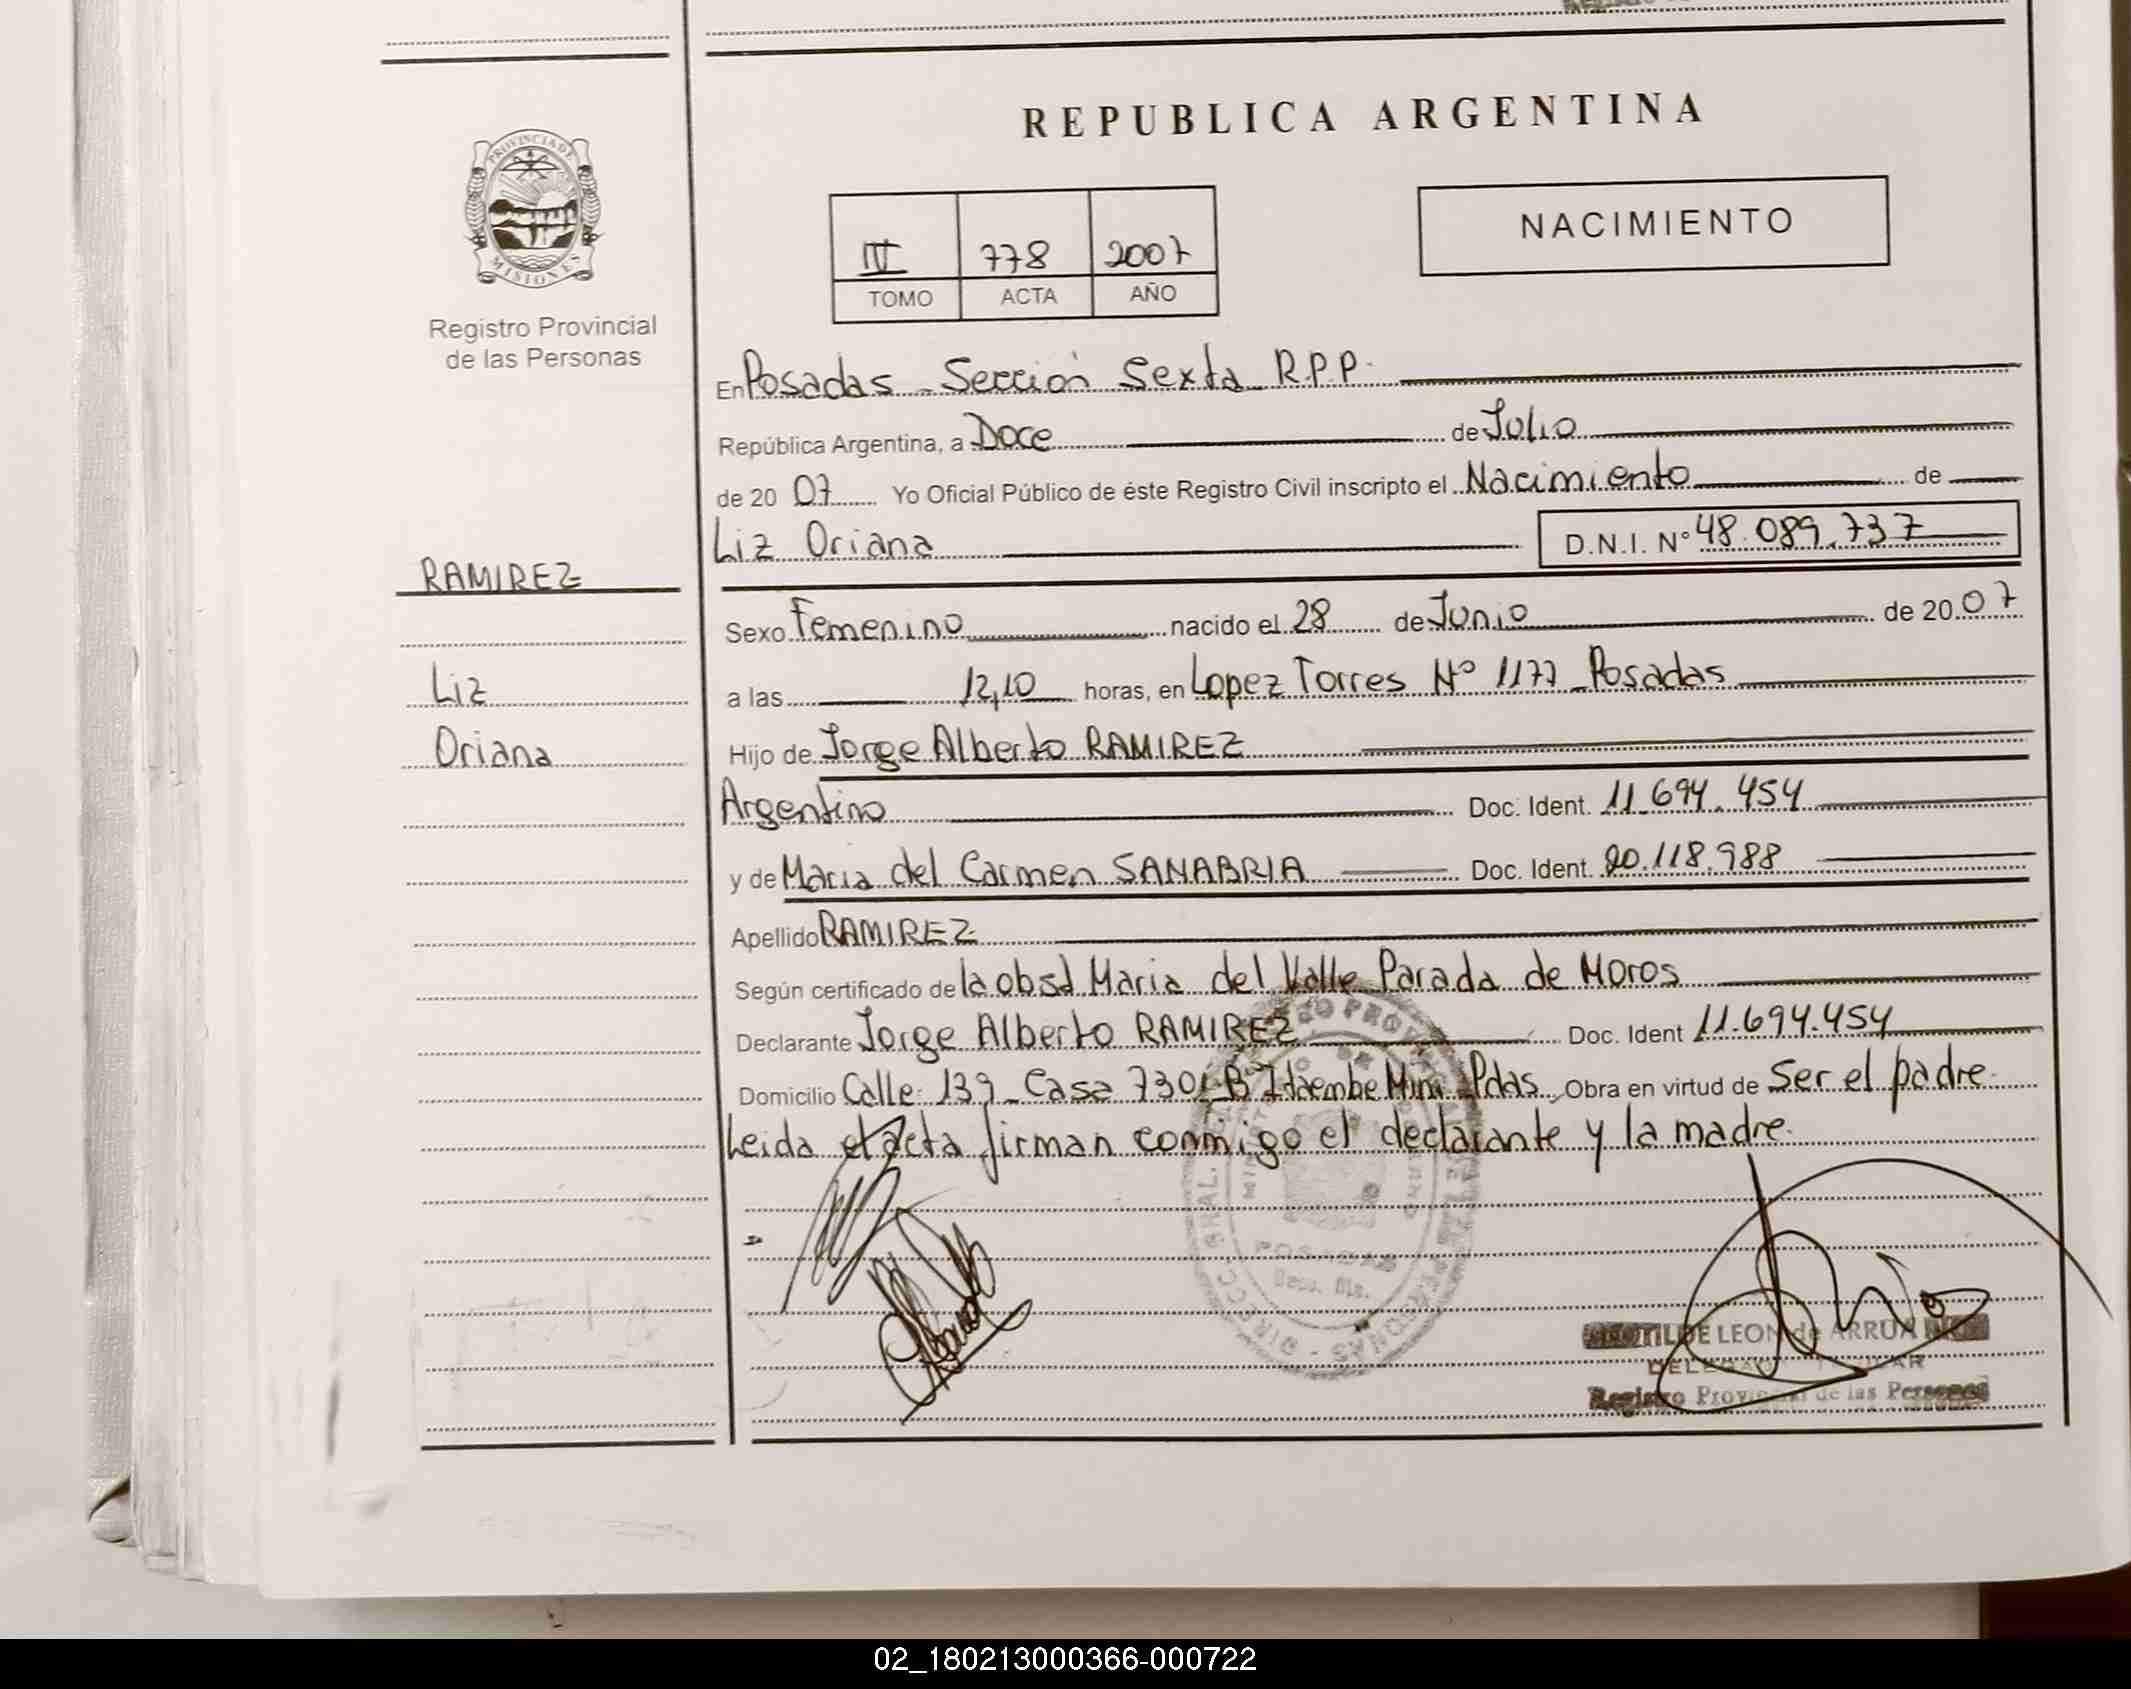 REPUBLICA ARGENTINA
PROVINCIA DE
MISIONES
Registro Provincial
de las Personas
IV 778 2007
TOMO ACTA AÑO
NACIMIENTO
En Posadas - Sección Sexta R.P.P.
República Argentina, a Doce de Julio
de 20 07 Yo Oficial Público de éste Registro Civil inscripto el Nacimiento de
Liz Oriana D.N.I. Nº 48.089.737
RAMIREZ
Liz
Oriana
Sexo Femenino nacido el 28 de Junio de 20 07
a las 12,10 horas, en Lopez Torres Nº 1177 - Posadas
Hijo de Jorge Alberto RAMIREZ
Argentino Doc. Ident. 11.694.454
y de Maria del Carmen SANABRIA Doc. Ident. 20.118.988
Apellido RAMIREZ
Según certificado de la obst Maria del Valle Parada de Moros
Declarante Jorge Alberto RAMIREZ Doc. Ident 11.694.454
Domicilio Calle: 139 - Casa 7301 - Bº Itaembe Mini - Pdas. Obra en virtud de Ser el padre.
Leida el acta firman conmigo el declarante y la madre.
POSADAS
LEON de ARRUA
Registro Provincial de las Personas
02_180213000366-000722